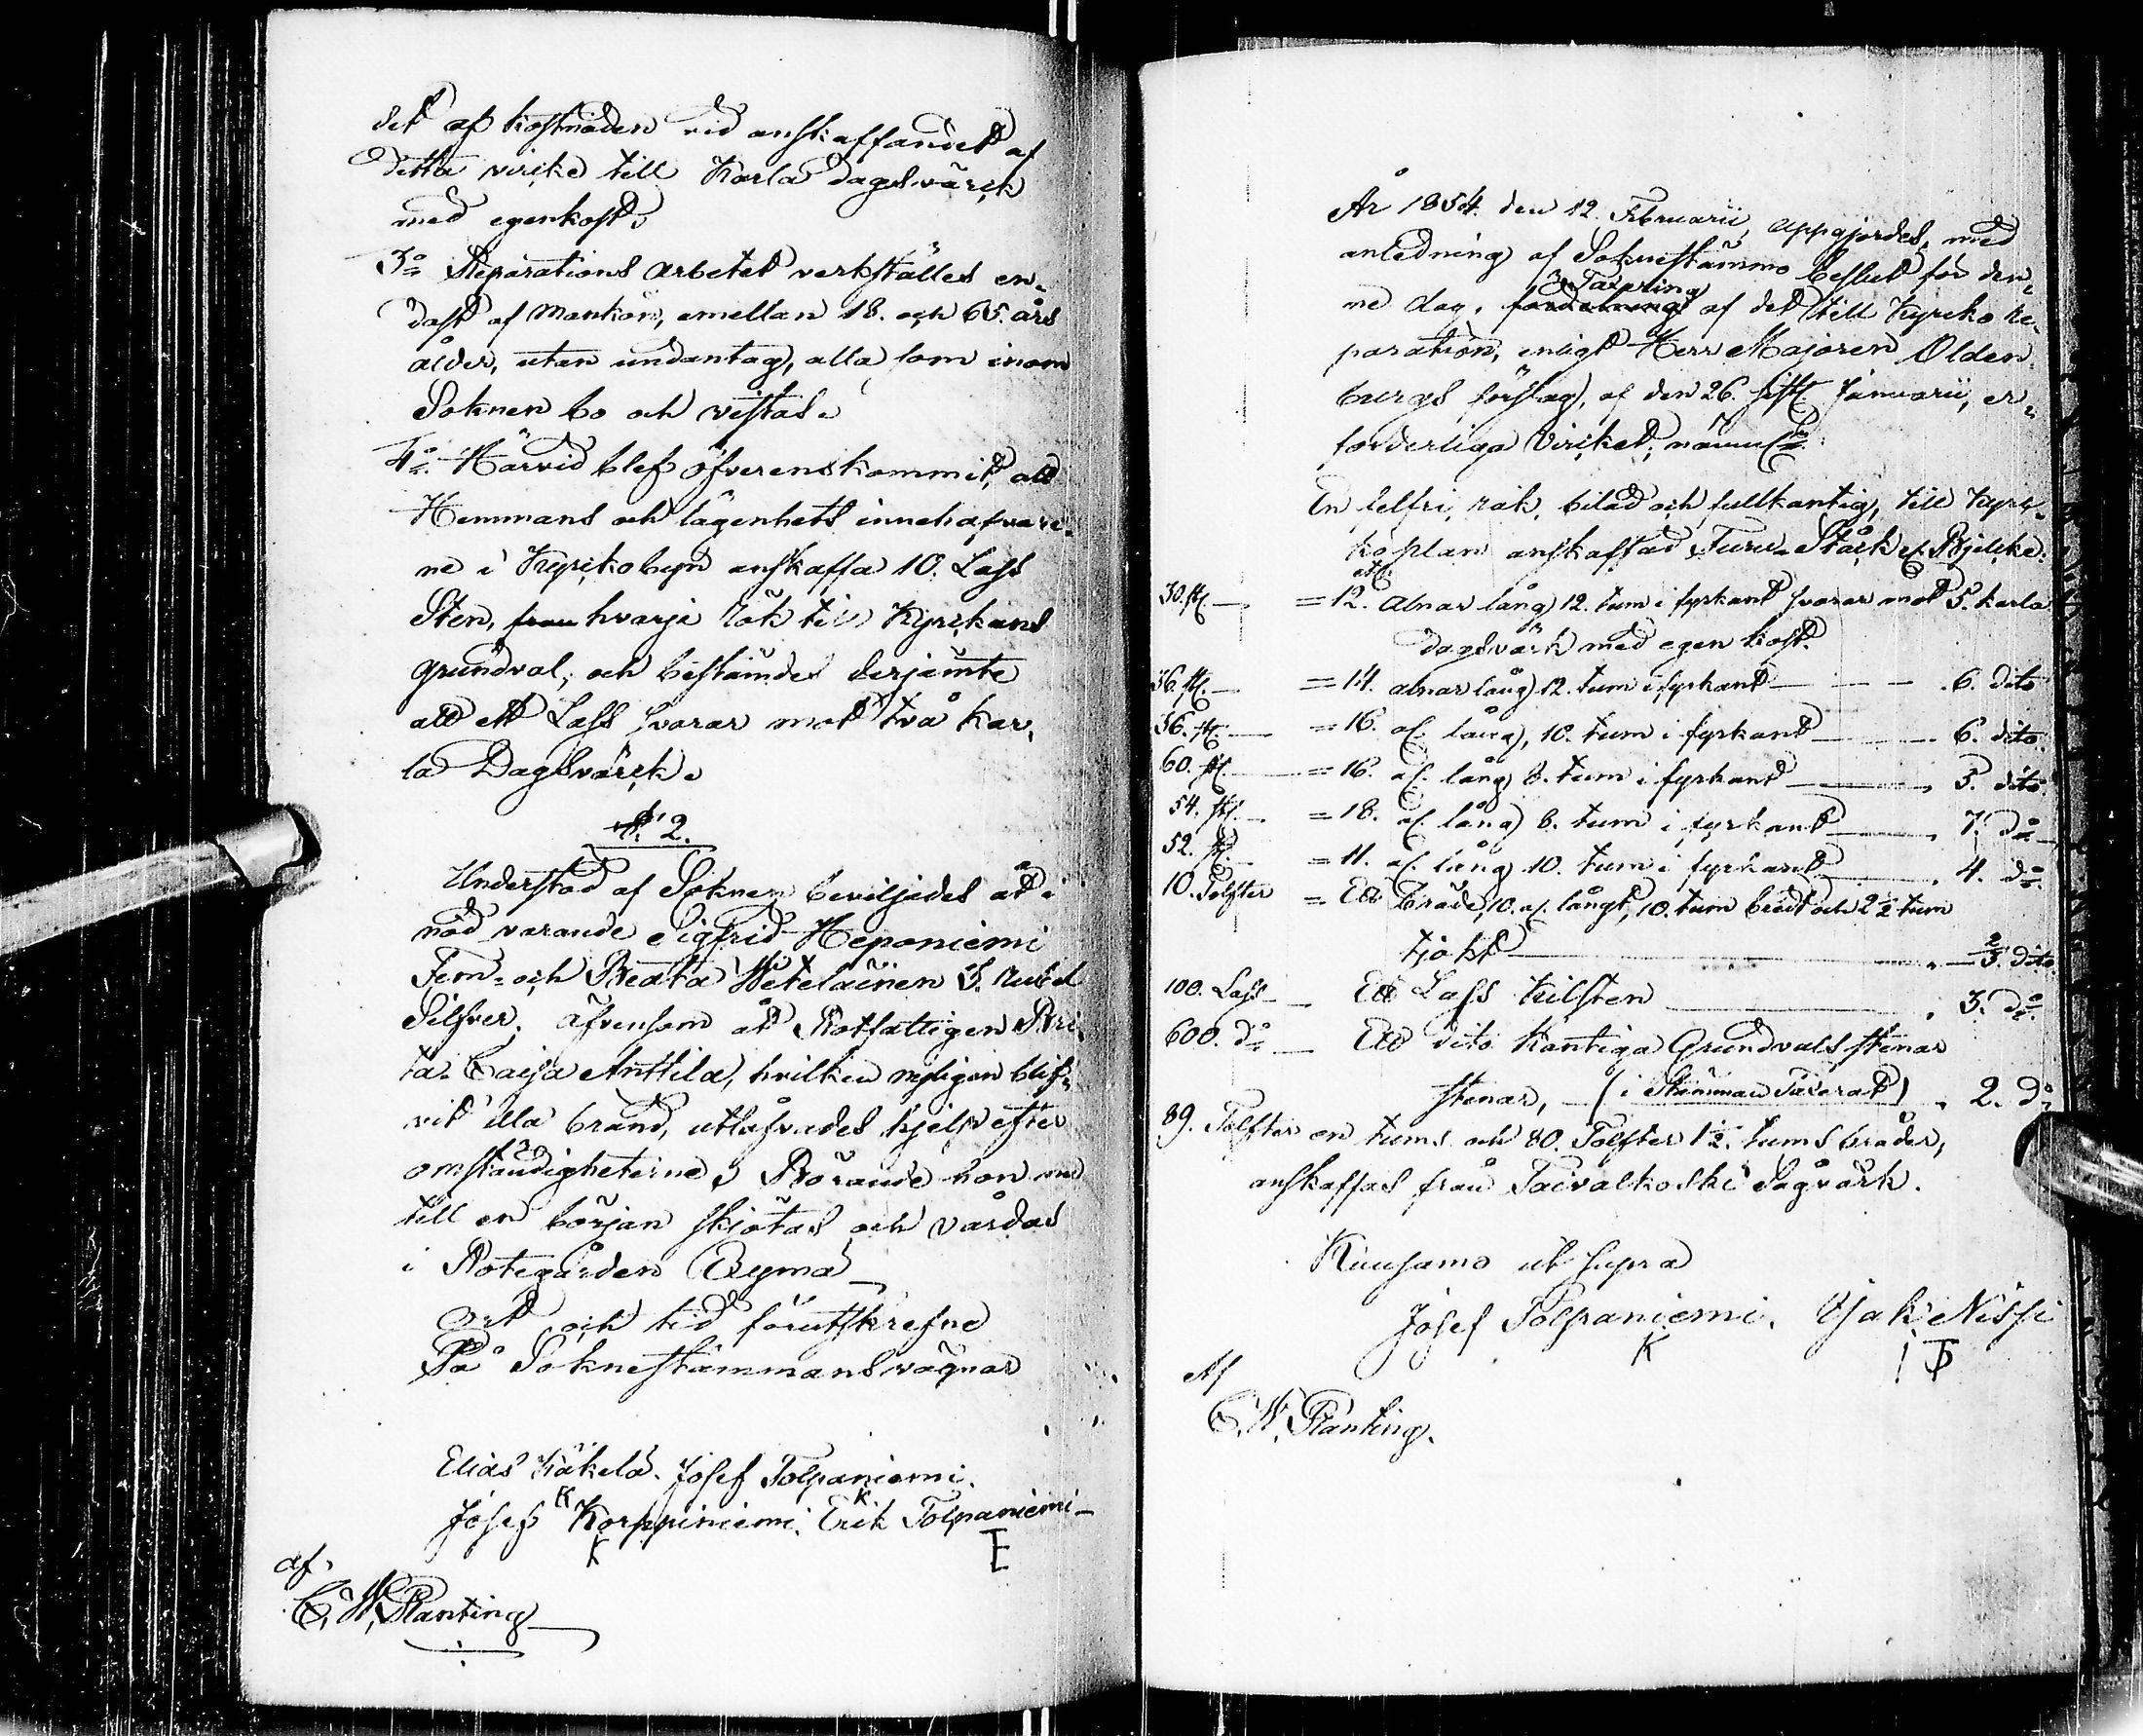 det af kostnaden vid anskaffandet af
detta virike till Karla dagsvärck
med egenkost.
3:o Reparations arbetet verkställes en-
dast af Mankön, emellan 18. och 65. års
ålder, utan undantag, alla som inom
Soknen bo och vistas.
4:o Härvid blef öfverenskommit, att
Hemmans och lägenhets innehafvare-
ne i Kyrickobyn anskaffa 10. Lass
Sten, från hvarje Rök till Kyrckans
grundval, och bestämdes derjämte
att ett Lass svarar mot två Kar-
la Dagsvärck.
§. 2.
Understöd af Soknen beviljades åt i
nöd varande Sigfrid Heponiemi
Fem- och Beata Wetelainen 3. Rubel
Silfver. äfvensom åt Rotfattigen Bri-
ta Caisa Anttila, hvilken nyligen blif-
vit illa bränd, utlåfvades hjelp efter
omständigheterne; Börande hon nu
till en början skjötas och vårdas
i Rotegården Äymä
Ort och tid förutskrefne
På Soknestämmans vägnar
Elias Käkelä. Josef Tolpaniemi.
K K
Josef Korppiniemi. Erik Tolpaniemi-
K E
af.
C. W. Planting
År 1854. den 12. Februarii, uppgjordes, med
anledning af Soknestämmo beslut för den-
Taxering
ne dag, fördelning af det till Kyrcko re-
paration, enligt Herr Majoren Olden-
burgs förslag, af den 26. sistl. Januarii, er-
forderliga Viricket; nämnl:n
En felfri, rak, bilad och fullkantig, till Kyrc-
koplan anskaffad Furu-Ståck el. Bjelcke.
30. st. — = 12. alnar lång 12. tum i fyrkant svarar mot 5. karla
dagsvärk med egen kost.
36. st. — = 14. alnar lång 12. tum i fyrkant — — . 6. dito
36. st. — = 16. al. lång, 10. tum i fyrkant — 6. dito.
60. st. — = 16. al. lång 8. tum i fyrkant — 5. dito.
54. st. — = 18. al. lång 8. tum i fyrkant — 7. d:o
52. st. — = 11. al. lång 10. tum i fyrkant — 4. d:o
10. Tolfter = Ett bräde, 10. al. långt, 10. tum bredt och 2 1/2 tum
tjokt — 2/3. dito
100. Lass — Ett Lass kilsten — 3. d:o
600. d:o — Ett dito kantiga Grundvals stenar
stenar, — (i Stämman Taxerat) . 2. d:o
89. Tolfter en tums och 80. Tolfter 1 1/2. tums bräder,
anskaffas från Taivalkoski Sågvärk.
Kuusamo ut supra
Josef Tolpaniemi. Isak Nissi
K
Af
C. W. Planting.